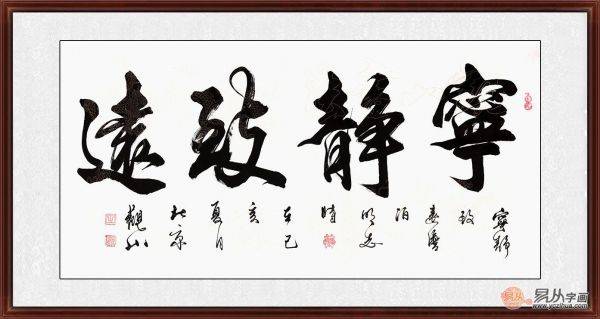 寧靜致遠
寧靜
致
遠澹
泊
明志
時
在己
亥
夏月
北京
觀山
易从
易从字画
www.yczihua.com